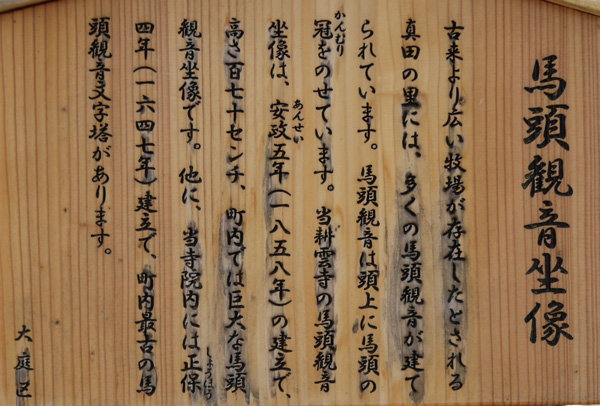 馬頭観音坐像
古来より広い牧場が存在したとされる
真田の里には、多くの馬頭観音が建て
られています。馬頭観音は頭上に馬頭の
かんむり
冠をのせています。当耕雲寺の馬頭観音
あんせい
坐像は、安政五年(一八五八年)の建立で、
高さ百七十センチ、町内では巨大な馬頭
しょうほう
観音坐像です。他に、当寺院内には正保
四年(一六四七年)建立で、町内最古の馬
頭観音文字塔があります。
大庭区